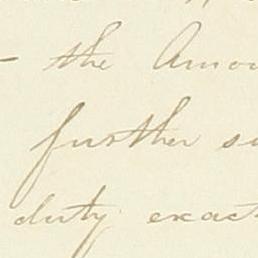 – the Amou
further s
duty exact